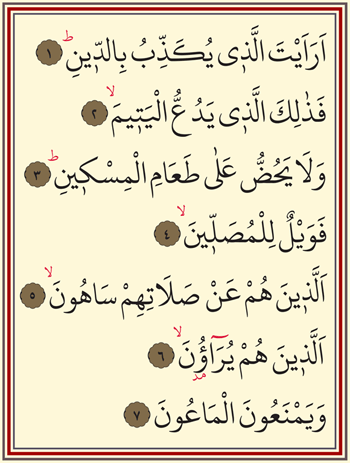 اَرَاَيْتَ الَّذٖى يُكَذِّبُ بِالدّٖينِ ط ١
فَذٰلِكَ الَّذٖى يَدُعُّ الْيَتٖيمَ لا ٢
وَلَا يَحُضُّ عَلٰى طَعَامِ الْمِسْكٖينِ ط ٣
فَوَيْلٌ لِلْمُصَلّٖينَ لا ٤
اَلَّذٖينَ هُمْ عَنْ صَلَاتِهِمْ سَاهُونَ لا ٥
اَلَّذٖينَ هُمْ يُرَٓاؤُ۫نَ لا ٦
مد
وَيَمْنَعُونَ الْمَاعُونَ ٧